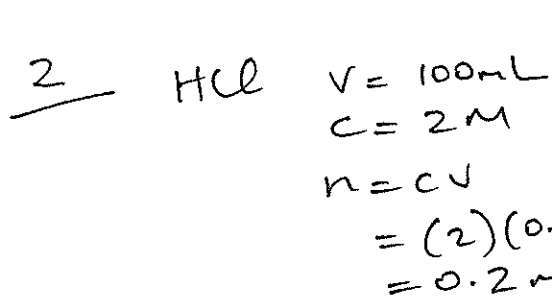 2 HCl V = 100mL
C = 2M
n = CV
= (2)(0.
= 0.2